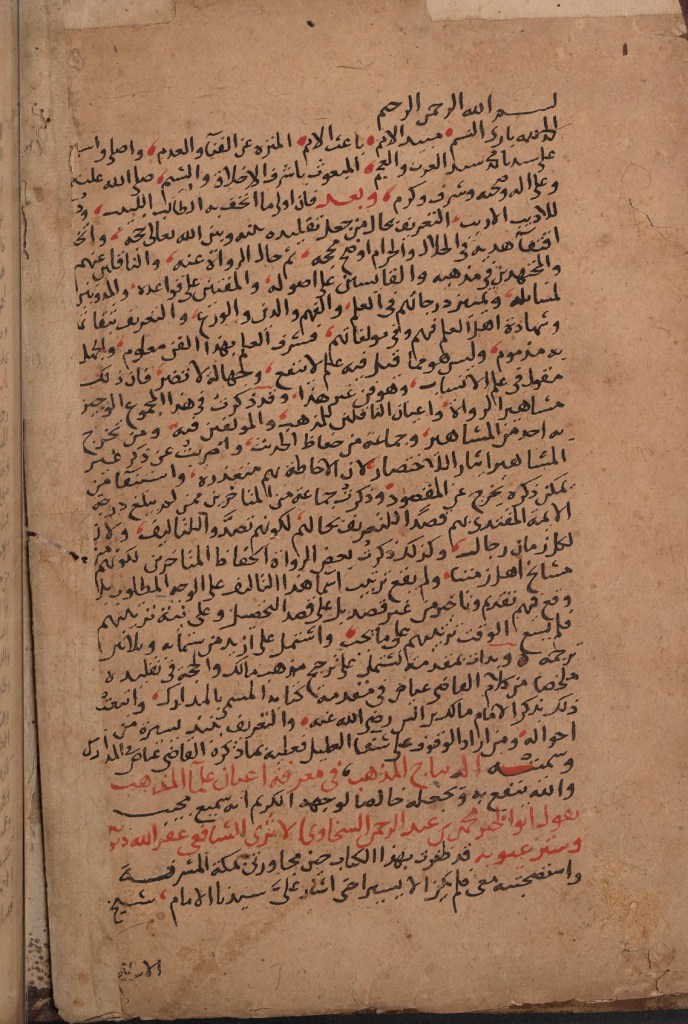 بسم الله الرحمن الرحيم
الحمد لله بارئ النسم مبيد الامم باعث الامم المنزه عن الفنا والعدم واصلي واسلم
على سيدنا محمد سيد العرب والعجم المبعوث باشرف الاخلاق والشيم صلى الله عليه
وعلى اله وصحبه وشرف وكرم وبعد فان اولى ما اتحف به الطالب اللبيب
للاديب الاريب التعريف بحال من جعل تقليده بينه وبين الله تعالى حجة
اقتفا هديه في الحلال والحرام اوضح محجة ثم حال الرواة عنه والناقلين عنهم
والمجتهدين في مذهبه والقائسين على اصوله والمفتين على قواعده والمدونين
لمسائله وتمييز درجاتهم في العلم والفهم والدين والورع والتعريف بثقاتهم
وشهادة اهل العلم فيهم وفي مولفاتهم فشرف العلم بهذا الفن معلوم والجهل
به مذموم وليس هو مما قيل فيه علم لا ينفع وجهالة لا تضر فان ذلك
مقول في علم الانساب وهو فن غير هذا وقد ذكرت في هذا المجموع الوجيز
مشاهير الرواة واعيان الناقلين للمذهب والمولفين فيه ومن تخرج
به احد من المشاهير وجماعة من حفاظ الحديث واضربت عن ذكر غير
المشاهير ايثارا للاختصار لان الاحاطة بهم متعذرة واستيفا من
يمكن ذكره يخرج عن المقصود وذكرت جماعة من المتاخرين ممن لم يبلغ درجة
الايمة المقتدى بهم قصدا للتعريف بحالهم لكونهم تصدوا للتاليف ولان
لكل زمان رجال وكذلك ذكرت بعض الرواة الحفاظ المتاخرين لكونهم من
مشائخ اهل زمننا ولم يقع ترتيب اسما هذا التاليف على الوجه المطلوب بل
وقع فيهم تقديم وتاخير من غير قصد بل على قصد التحصيل وعلى نية ترتيبهم
فلم يسع الوقت ترتيبهم على ما يجب واشتمل على ازيد من ستماية وثلاثين
ترجمة وبدات بمقدمة تشتمل على ترجيح مذهب مالك والحجة في تقليده
ملخصا من كلام القاضي عياض في مقدمة كتابه المسمى بالمدارك واتبعت
ذلك بذكر الامام مالك بن انس رضي الله عنه والتعريف بنبذ يسيرة من
احواله ومن اراد الوقوف على شفا العليل فعليه بما ذكره القاضي عياض في المدارك
وسميته الديباج المذهب في معرفة اعيان علما المذهب
والله ينفع به ويجعله خالصا لوجهه الكريم انه سميع مجيب
يقول ابو الخير محمد بن عبد الرحمن السخاوي الاثري الشافعي غفر الله ذنوبه
وستر عيوبه قد ظفرت بهذا الكتاب حين مجاورتي بمكة المشرفة
واستصحبته معي فلم يكن الا يسيرا حتى اشار علي سيدنا الامام شيخ
الاسلام